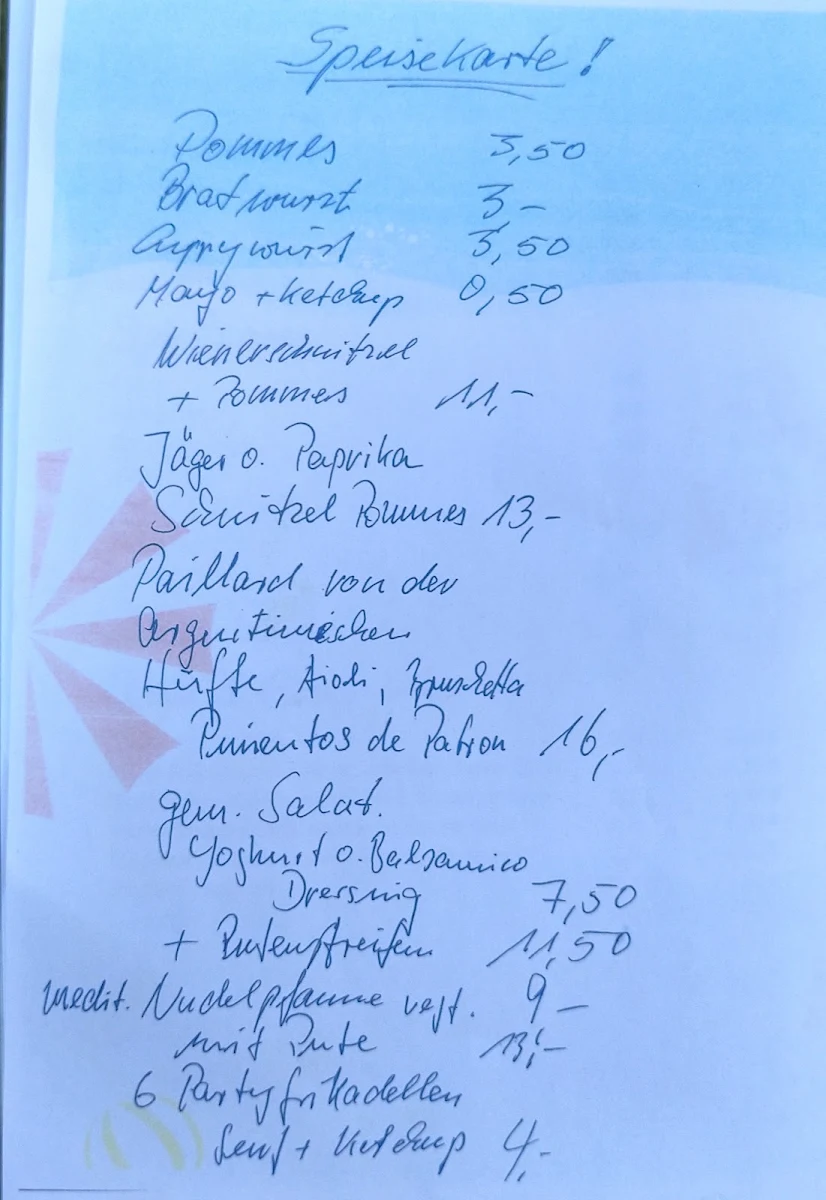 Speisekarte!
Pommes 3,50
Bratwurst 3,-
Currywurst 3,50
Mayo + Ketchup 0,50
Wienerschnitzel
+ Pommes 11,-
Jäger o. Paprika
Schnitzel Pommes 13,-
Paillard von der
Argentinischen
Hüfte, Aioli, Bruschetta
Pimentos de Patron 16,-
gem. Salat.
Yoghurt o. Balsamico
Dressing 7,50
+ Putenstreifen 11,50
medit. Nudelpfanne vegt. 9-
mit Pute 13,-
6 Partyfrikadellen
Senf + Ketchup 4,-